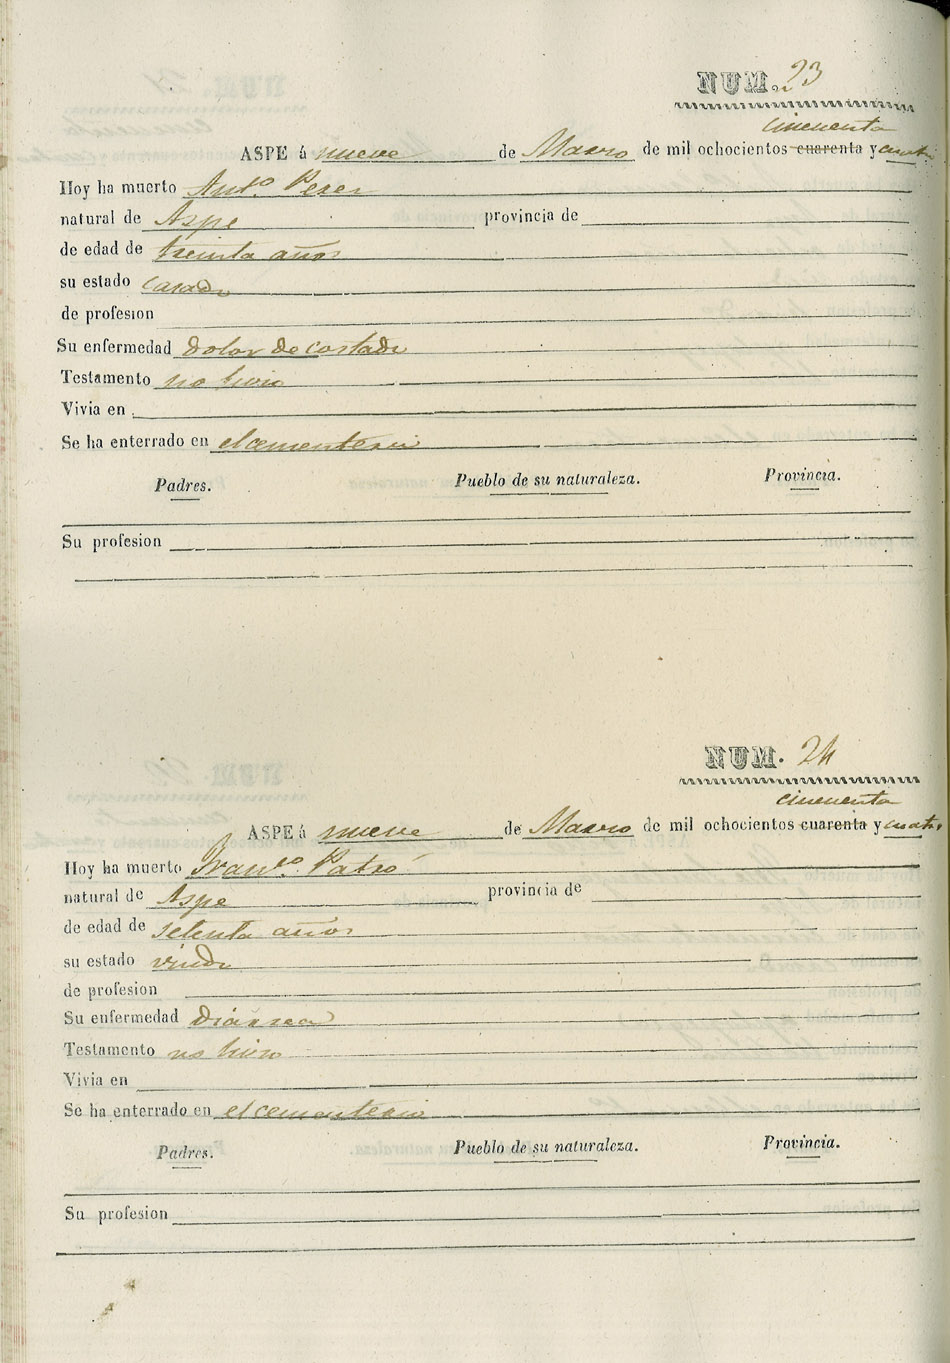 NUM. 23
cincuenta
ASPE á nueve de Marzo de mil ochocientos cuarenta y cuatro
Hoy ha muerto Antº Perez
natural de Aspe provincia de
de edad de treinta años
su estado casado
de profesion
Su enfermedad dolor de costado
Testamento no hizo
Vivia en
Se ha enterrado en el cementerio
Padres. Pueblo de su naturaleza. Provincia.
Su profesion
NUM. 24
cincuenta
ASPE á nueve de Marzo de mil ochocientos cuarenta y cuatro
Hoy ha muerto Franco. Patró
natural de Aspe provincia de
de edad de setenta años
su estado viudo
de profesion
Su enfermedad Diarrea
Testamento no hizo
Vivia en
Se ha enterrado en el cementerio
Padres. Pueblo de su naturaleza. Provincia.
Su profesion